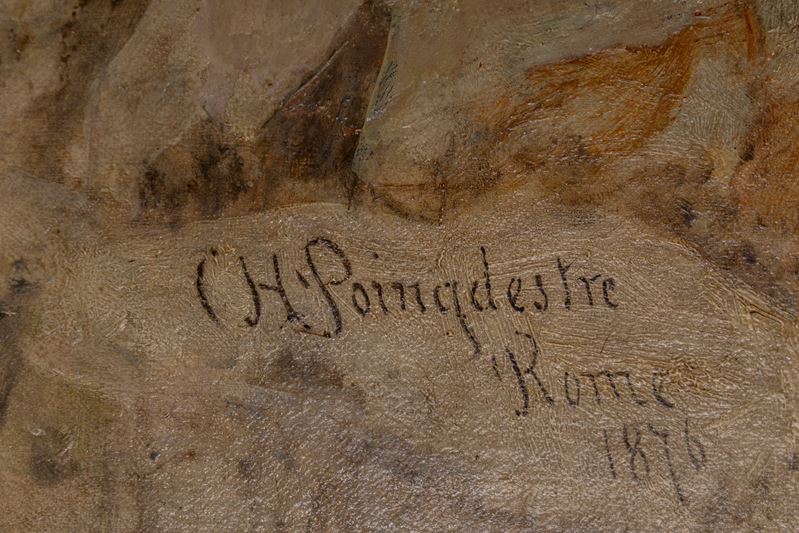 CH Poingdestre
Rome
1876